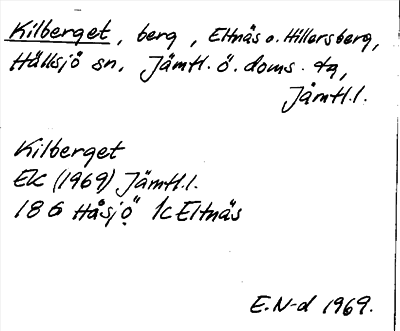 Kilberget, berg, Eltnäs o. Hillersberg,
Hällsjö sn, Jämtl. ö. doms. tg,
Jämtl.l.
Kilberget
EK (1969) Jämtl.l.
186 Håsjö 1c Eltnäs
E.N-d 1969.